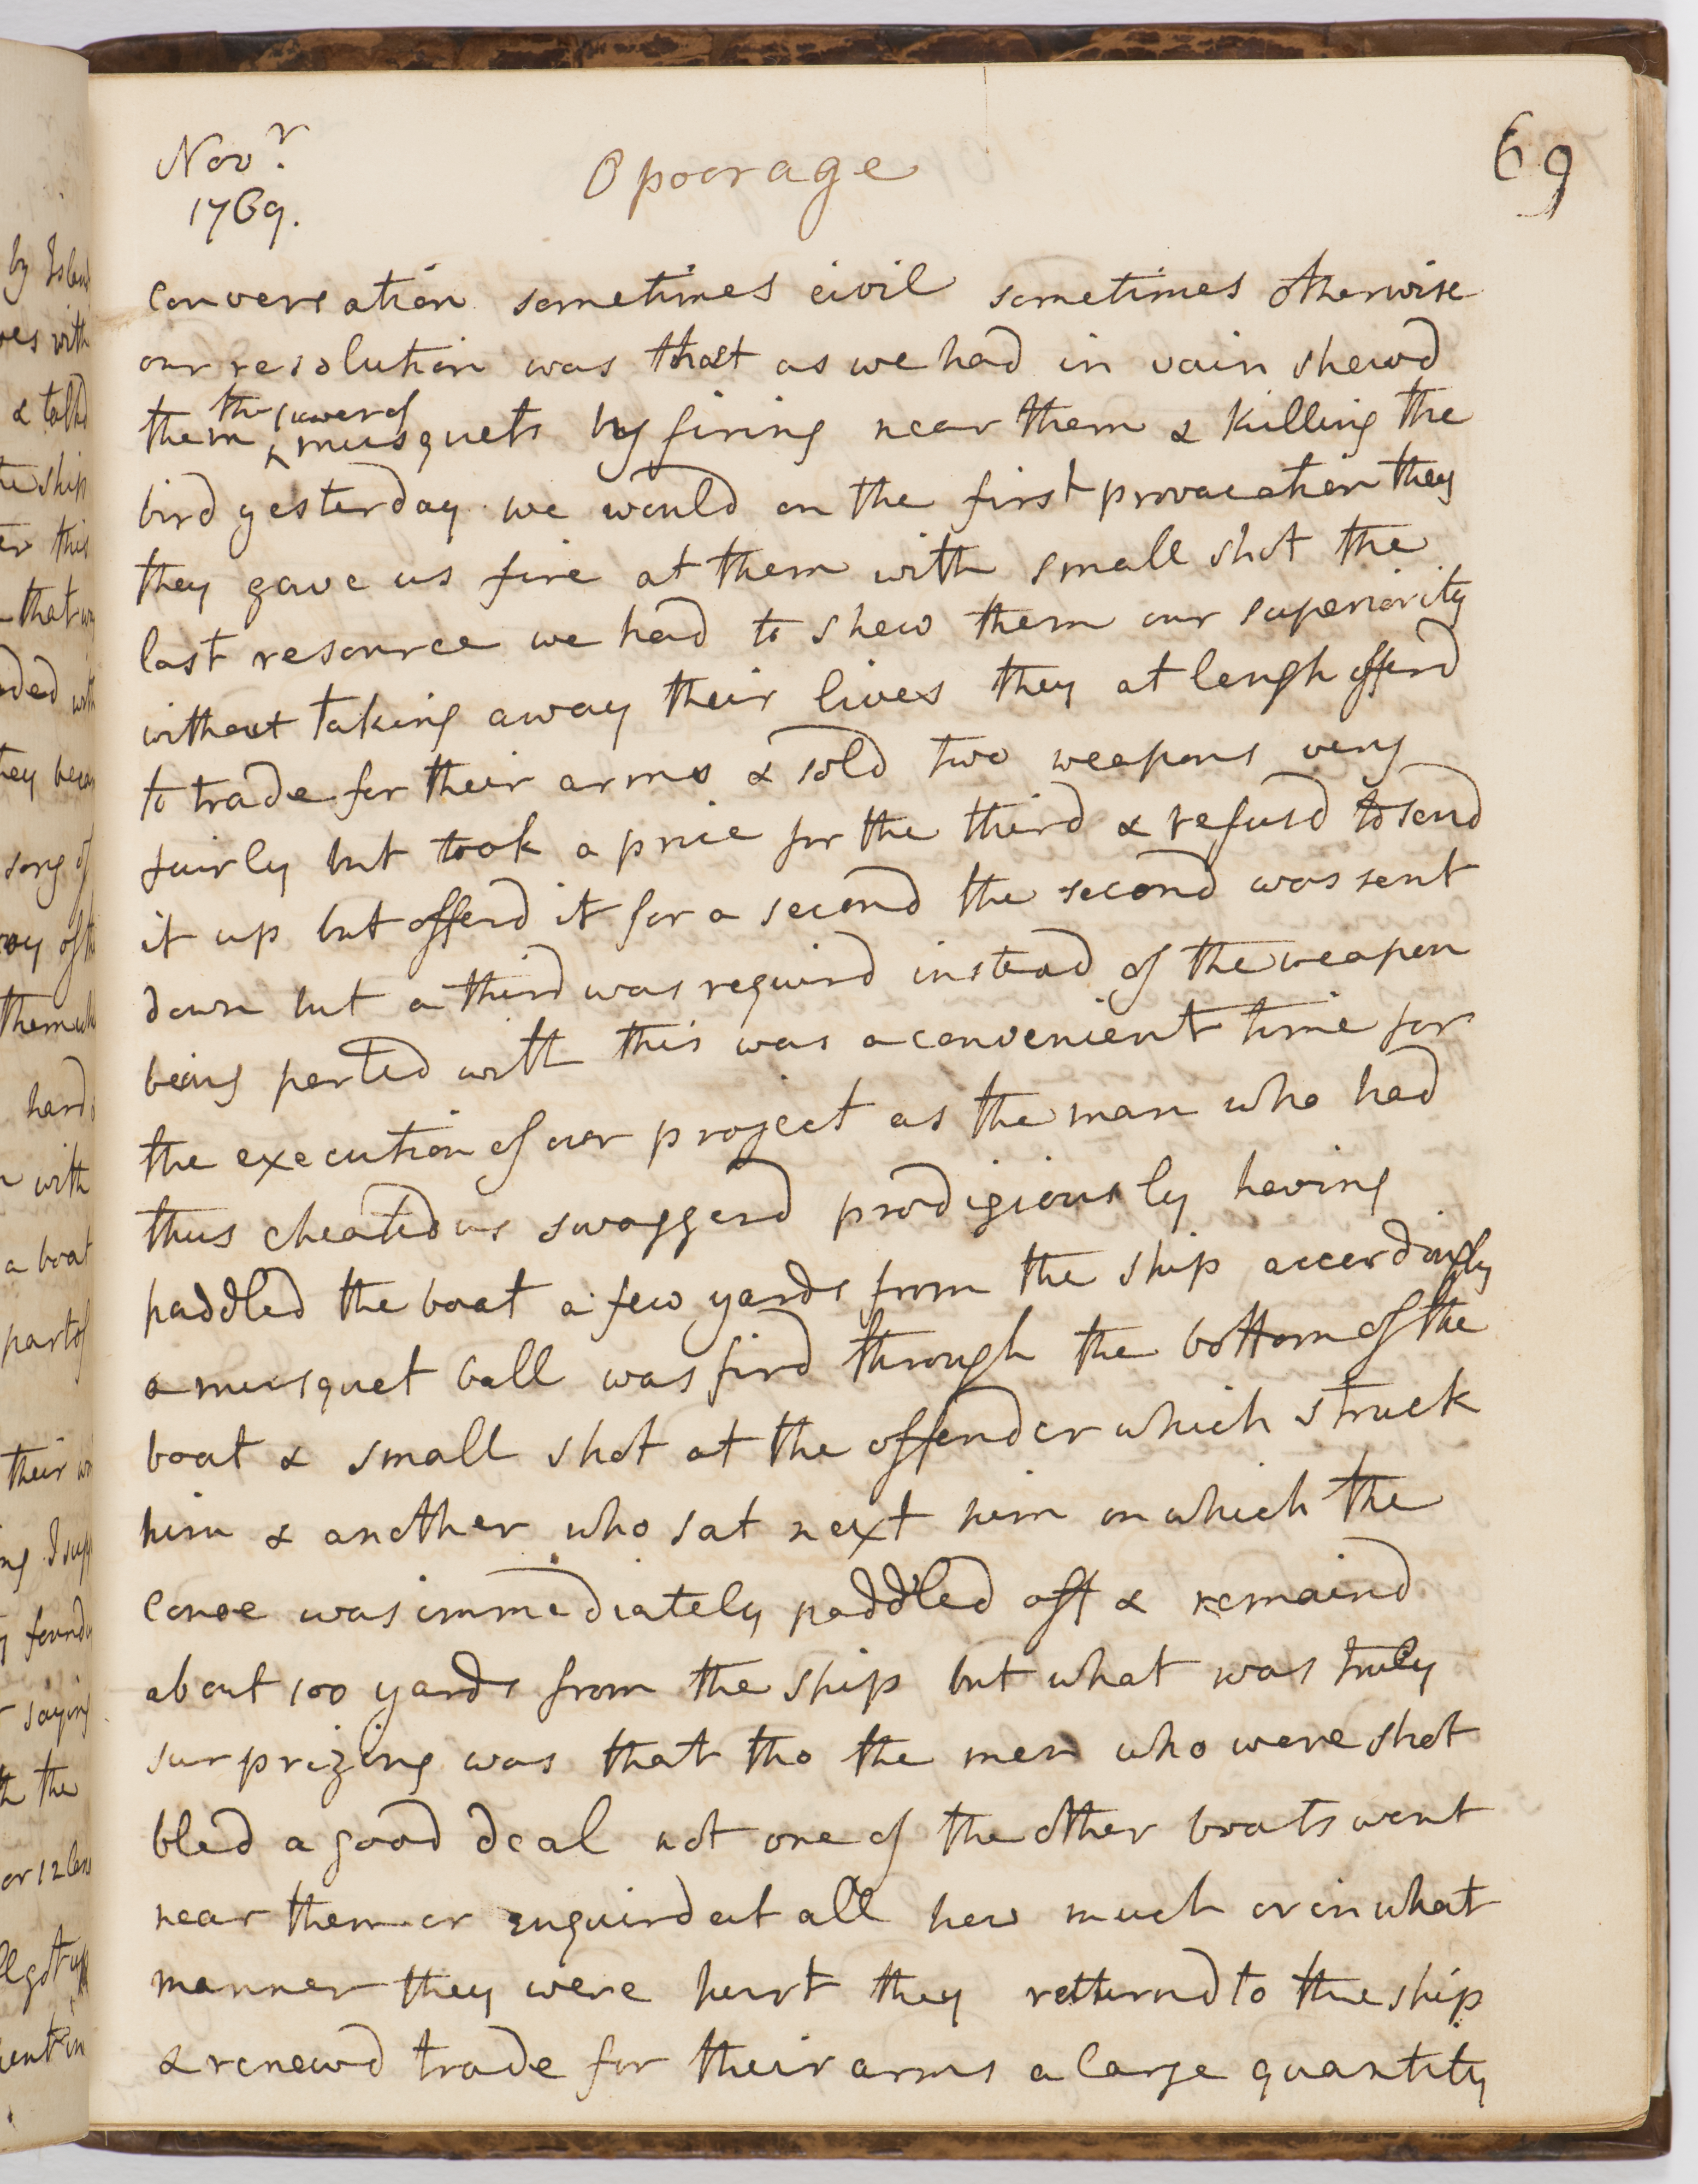 Novr.
1769.
Opoorage
69
conversation sometimes civil sometimes otherwise
our resolution was that as we had in vain shewd
them the power of musquets by firing near them & killing the
bird yesterday we would on the first provocation they
they gave us fire at them with small shot the
last resource we had to shew them our superiority
without taking away their lives they at lengh offerd
to trade for their arms & sold two weapons very
fairly but took a price for the third & refusd to send
it up but offerd it for a second the second was sent
down but a third was requird instead of the weapon
being parted with this was a convenient time for
the execution of our project as the man who had
thus cheated us swaggerd prodigiously having
paddled the boat a few yards from the ship accordingly
a musquet ball was fird through the bottom of the
boat & small shot at the offender which struck
him & another who sat next him on which the
Canoe was immediately paddled off & remaind
about 100 yards from the ship but what was truly
surprizing was that tho the men who were shot
bled a good deal not one of the other boats went
near them or enquird at all how much or in what
manner they were hurt they returnd to the ship
& renewd trade for their arms a large quantity
by
with
& talkd
ship
this
that
song of
with
a boat
part of
their
saying
the
or 12